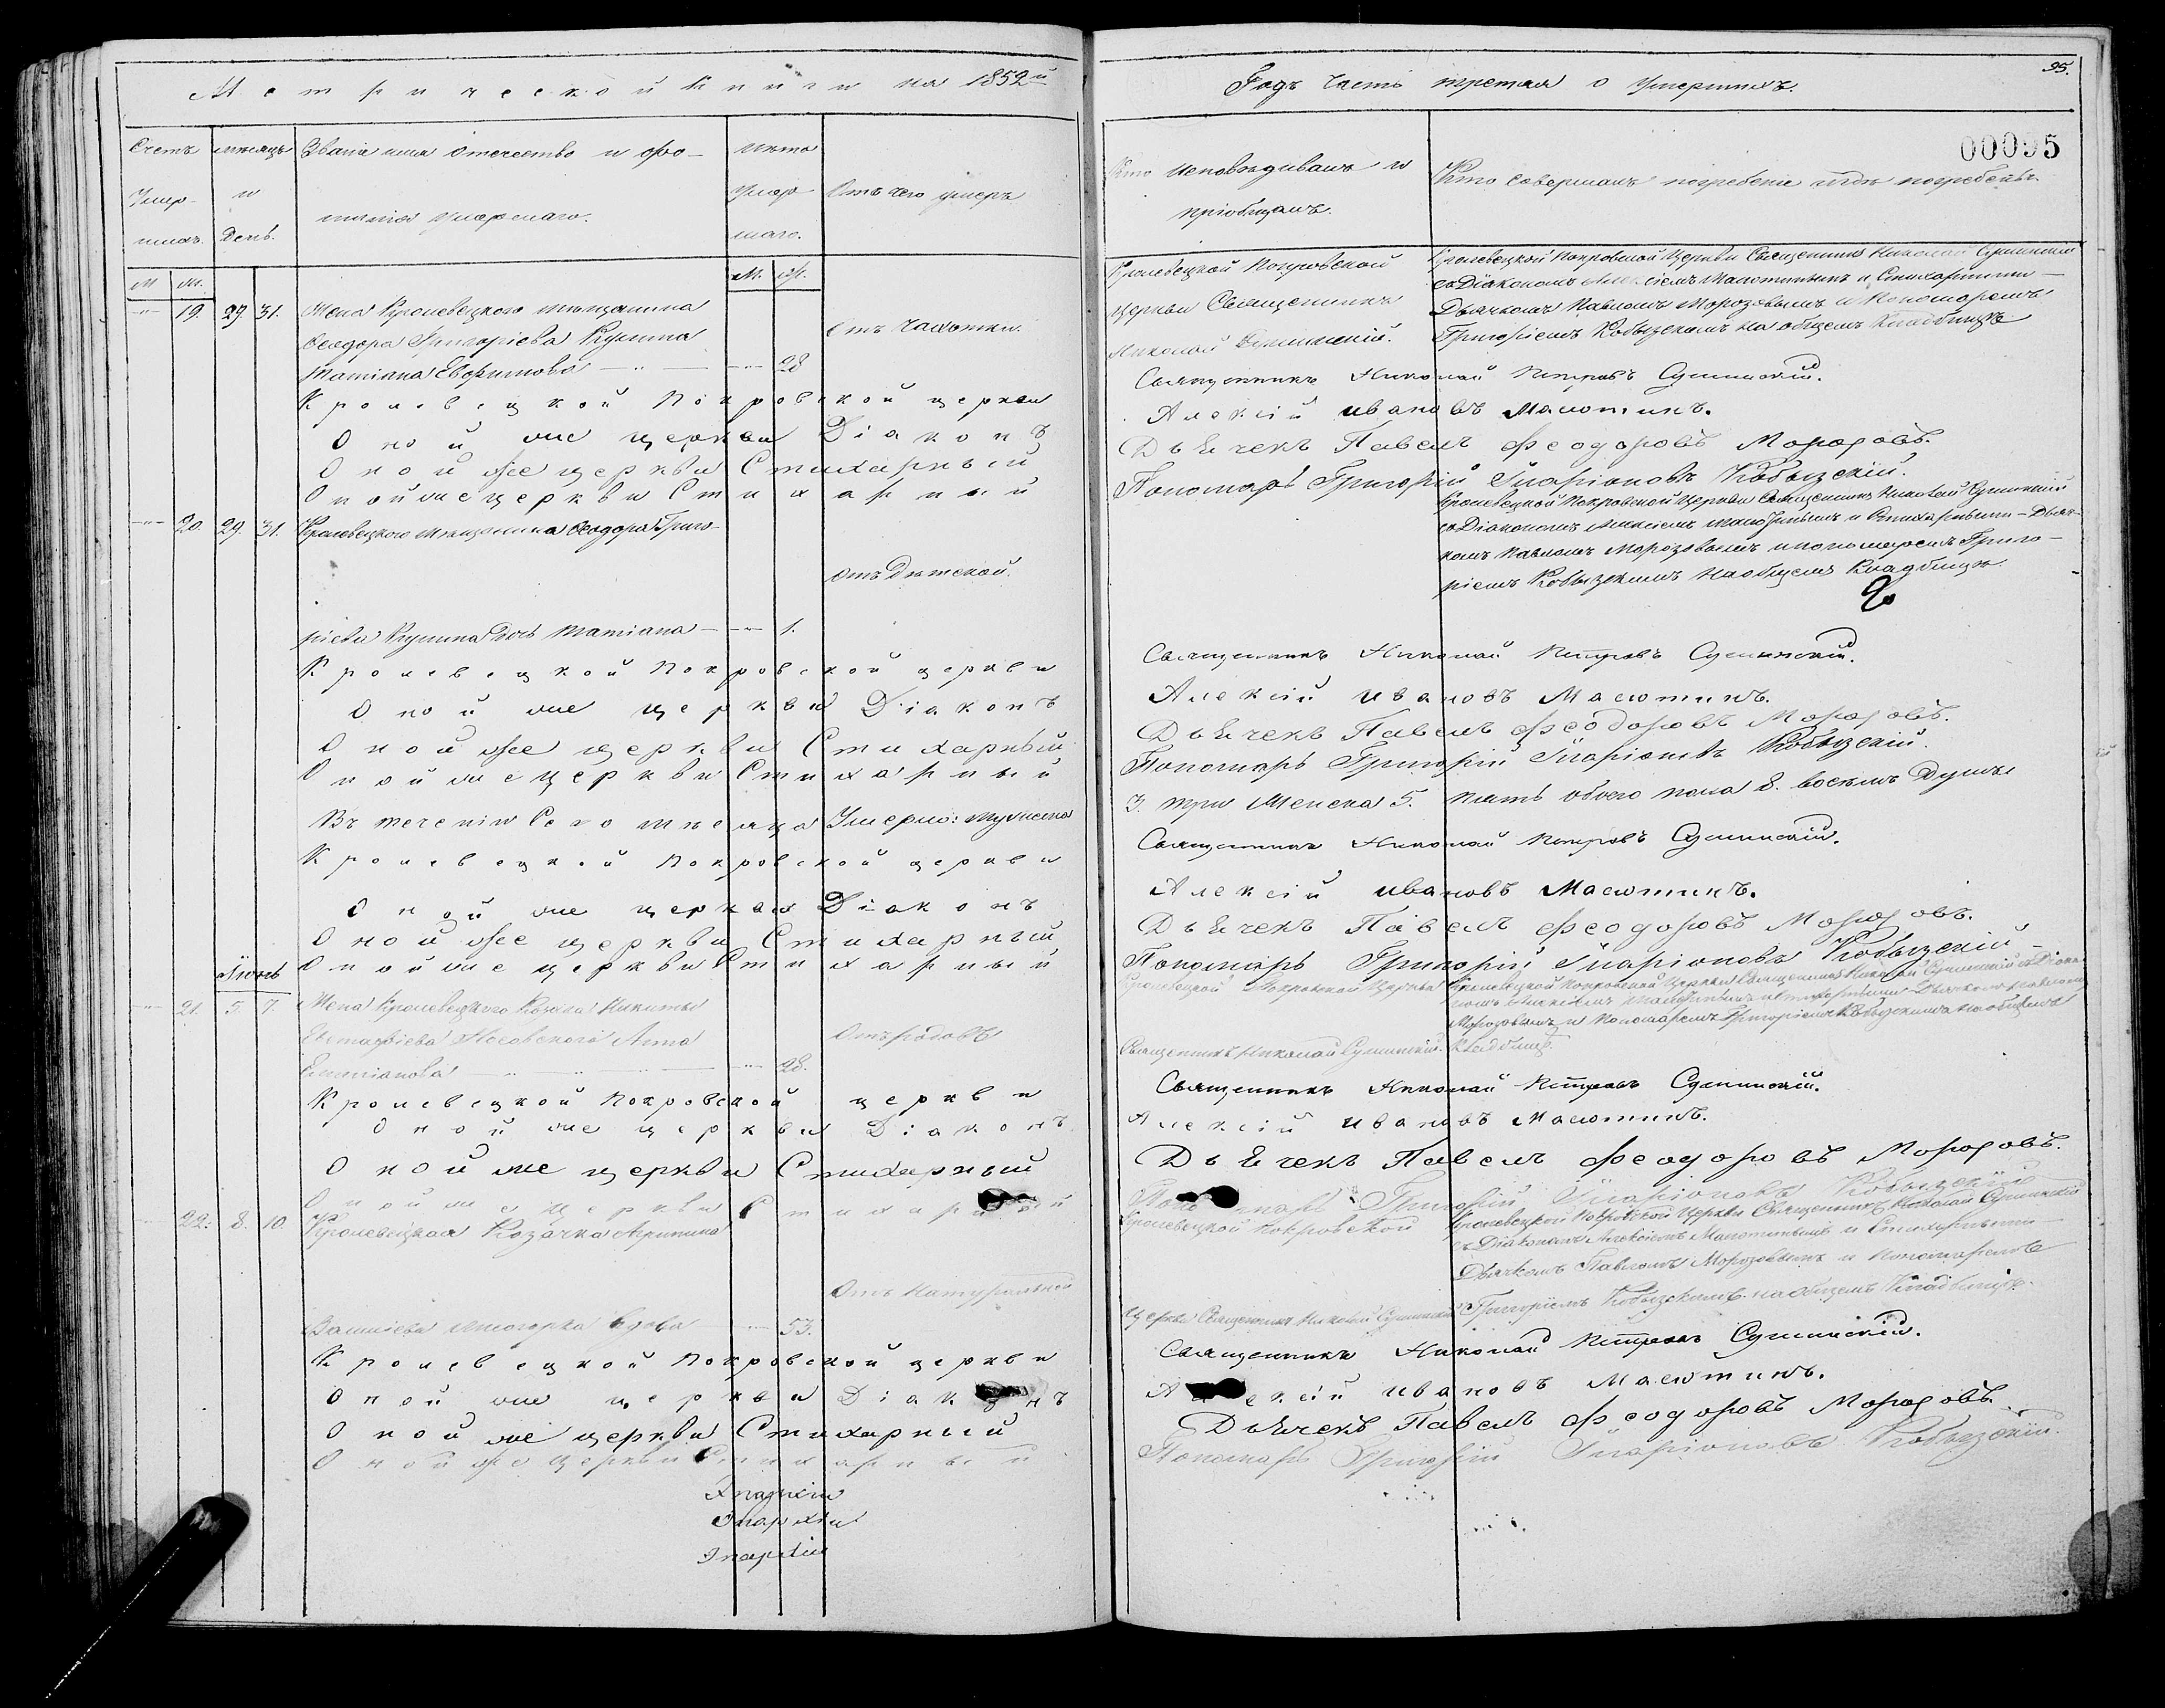 Метрической книги на 1852й
Счетъ
Умер-
шихъ.
мѣсяцъ
и
День.
Званіе имя отечество и фа-
милія умершаго.
лѣта
Умер
шаго.
Отъ чего умеръ
М
Ж.
М.
Ж.
19. 29. 31. Жена Кролевецкого мѣщанина
Феодора Григоріева Кулиша
Татіана Евфимова 28
Отъ чахотки.
Кролевецкой Покровской церкви
Оной же церкви Діаконъ
Оной же церкви Стихарный
Оной же церкви Стихарный
20. 29. 31. Кролевецкого мѣщанина Феодора Григо-
Отъ Дѣтской.
ріева Кулиша дочь Татіана 1.
Кролевецкой Покровской церкви
Оной же церкви Діаконъ
Оной же церкви Стихарный
Оной же церкви Стихарный
Въ теченіи Сего мѣсяца Умерло: мужеска
Кролевецкой Покровской церкви
Оной же церкви Діаконъ
Оной же церкви Стихарный
Оной же церкви Стихарный
21. 5. 7. Жена Кролевецкого Козака Никиты
Евстафіева Анна
Отъ родовъ
Емиліанова 28.
Кролевецкой Покровской церкви
Оной же церкви Діаконъ
Оной же церкви Стихарный
Оной же церкви Стихарный
22. 8. 10. Кролевецкая Козачка Агрипина
Отъ Натуральной
Василіева вдова 53.
Кролевецкой Покровской церкви
Оной же церкви Діаконъ
Оной же церкви Стихарный
Оной же церкви Стихарный
95.
Годъ Часть третая о Умершихъ.
00095
Кто исповѣдивалъ и
пріобщалъ.
Кто совершалъ погребеніе и гдѣ погребенъ.
Кролевецкой Покровской
церкви Священникъ
Николай Сулимскій.
Кролевецкой Покровской Церкви Священникъ Николай Сулимскій
съ Діакономъ Алексіемъ Малютинымъ и Стихарными
Дьячкомъ Павломъ Морозовымъ и Пономаремъ
Григоріемъ Кобызскимъ на общемъ Кладбищѣ
Священникъ Николай Петровъ Сулимскій.
Алексій Ивановъ Малютинъ.
Дьячекъ Павелъ Феодоровъ Морозовъ.
Пономарь Григорій Иларіоновъ Кобызскій.
Кролевецкой Покровской Церкви Священникъ Николай Сулимскій
съ Діакономъ Алексіемъ Малютинымъ и Стихарными Дьяч-
комъ Павломъ Морозовымъ и пономаремъ Григо-
ріемъ Кобызскимъ на общемъ Кладбищѣ.
Священникъ Николай Петровъ Сулимскій.
Алексій Ивановъ Малютинъ.
Дьячекъ Павелъ Феодоровъ Морозовъ.
Пономарь Григорій Иларіоновъ Кобызскій.
3. три Женска 5. пять обоего пола 8. восемь Душъ
Священникъ Николай Петровъ Сулимскій.
Алексій Ивановъ Малютинъ.
Дьячекъ Павелъ Феодоровъ Морозовъ.
Пономарь Григорій Иларіоновъ Кобызскій
Кролевецкой Покровской Церкви
Священникъ Николай Сулимскій.
Кролевецкой Покровской Церкви Священникъ Николай Сулимскій съ Діако-
номъ Алексіемъ Малютинымъ и стихарными Дьячкомъ Павломъ
Морозовымъ и Пономаремъ Григоріемъ Кобызскимъ на общемъ
Кладбищѣ.
Священникъ Николай Петровъ Сулимскій.
Алексій Ивановъ Малютинъ.
Дьячекъ Павелъ Феодоровъ Морозовъ.
Пономарь Григорій Иларіоновъ Кобызскій
Кролевецкой Покровской
Церкви Священникъ Николай Сулимскій
Кролевецкой Покровской Церкви Священникъ Николай Сулимскій
съ Діакономъ Алексіемъ Малютинымъ и Стихарными
Дьячкомъ Павломъ Морозовымъ и Пономаремъ
Григоріемъ Кобызскимъ на общемъ Кладбищѣ.
Священникъ Николай Петровъ Сулимскій.
Алексій Ивановъ Малютинъ.
Дьячекъ Павелъ Феодоровъ Морозовъ.
Пономарь Григорій Иларіоновъ Кобызскій.